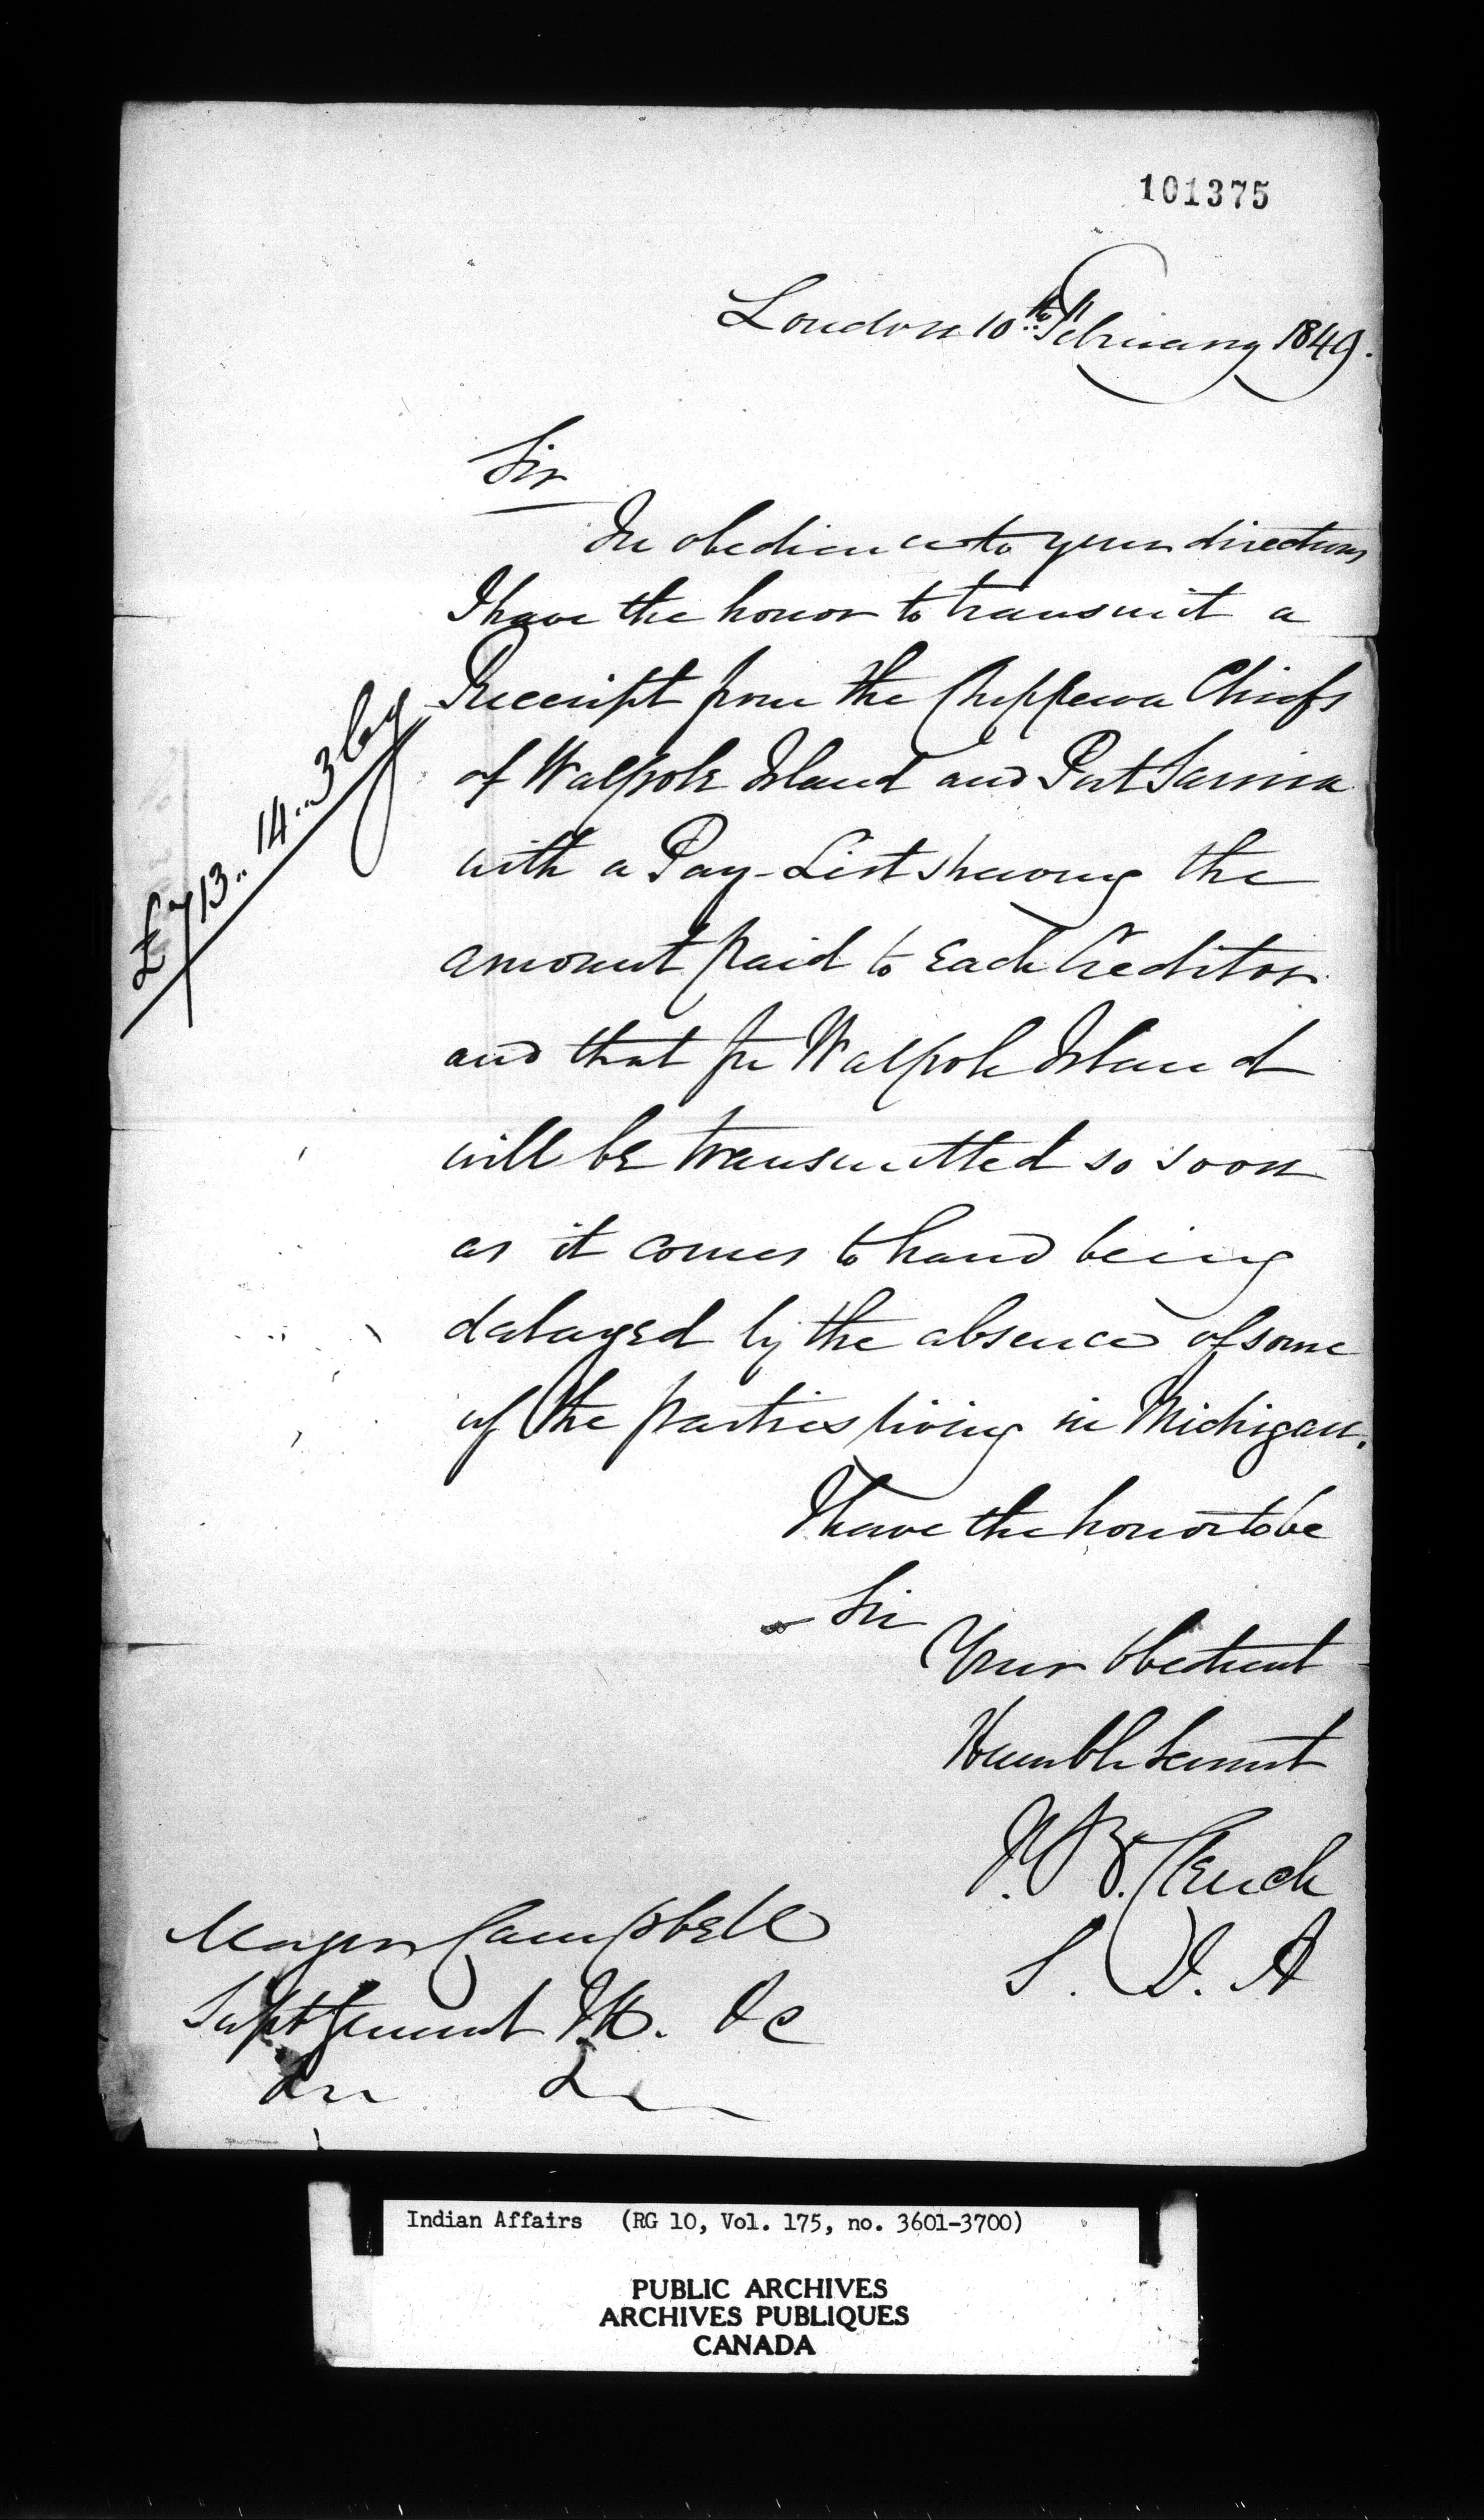 101375
London 10th February 1849.
Sir
In obedience to your directions
I have the honor to transmit a
Receipt from the Chippewa Chiefs
of Walpole Island and Port Sarnia
£713.. 14..3 Cy
with a Pay-List shewing the
amount paid to Each Creditor
and that for Walpole Island
will be transmitted so soon
as it comes to hand being
delayed by the absence of some
of the parties living in Michigan.
I have the honor to be
Sir
Your Obedient
Humble Servant
J. B. Clench
S. I. A
Major Campbell
Supt General I.A. &c
&c &c
Indian Affairs (RG 10, Vol. 175, no. 3601-3700)
PUBLIC ARCHIVES
ARCHIVES PUBLIQUES
CANADA